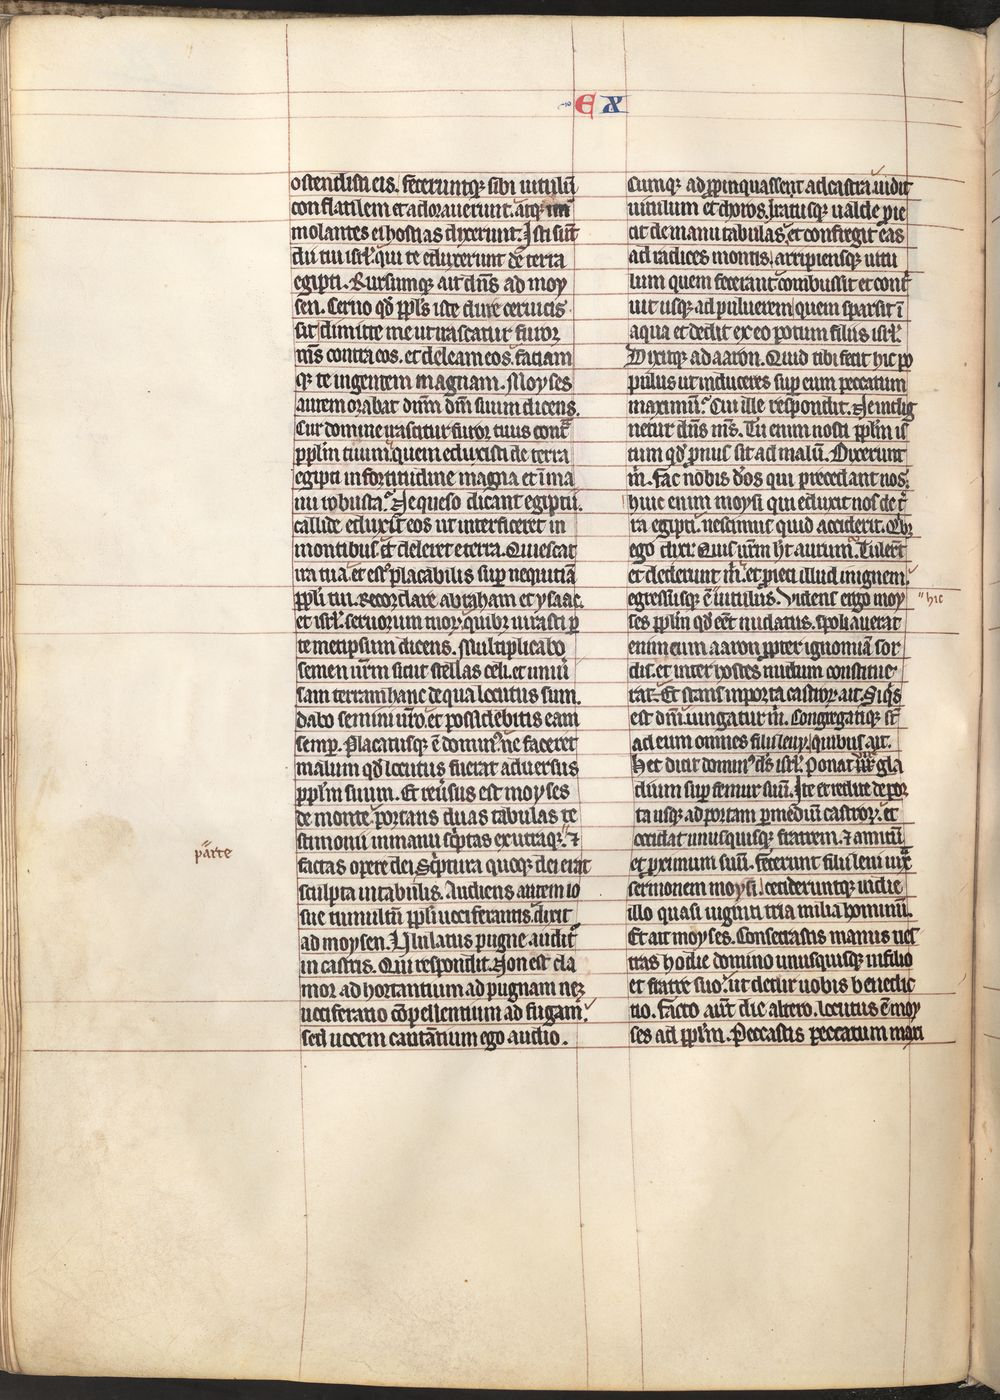 EX
ostendisti eis. feceruntqꝫ sibi uitulū
conflatilem et adorauerunt. atqꝫ im
molantes ei hostias dixerunt. Isti sūt
dii tui isrl̓. qui te eduxerunt de terra
egipti. Rursumqꝫ ait dn̄s ad moy
sen. Cerno qd̓ ppl̓s iste dure ceruicis
sit dimitte me ut irascatur furor
m̄s contra eos. et deleam eos. faciam
qꝫ te in gentem magnam. Moyses
autem orabat dn̄m dm̄ suum dicens.
Cur domine irascitur furor tuus cont̄
ppl̓m tuum quem eduxisti de terra
egipti in fortitudine magna et ī ma
nu robusta. Ne queso dicant egiptii.
callide eduxit eos ut interficeret in
montibus et deleret e terra. Quiescat
ira tua. et esto placabilis suꝑ nequitiā
ppl̓i tui. Recordare abraham et ysaac.
et isrl̓. seruorum tuoꝝ. quibꝫ iurasti ꝑ
temetipsum dicens. Multiplicabo
semen ur̄m sicut stellas celi. et uniū
sam terram hanc de qua locutus sum.
dabo semini ur̄o. et possidebitis eam
semꝑ. Placatusqꝫ ē dominꝰ ne faceret
malum qd̓ locutus fuerat aduersus
ppl̓m suum. Et reūsus est moyses
de monte. portans duas tabulas te
stimonii in manu sc̓ptas ex utraqꝫ. ⁊
parte
factas opere dei. Sc̓ptura quoqꝫ dei erat
sculpta in tabulis. Audiens autem io
sue tumultū ppl̓i uociferantis. dixit
ad moysen. Ululatus pugne auditᷣ
in castris. Qui respondit. Non est cla
mor adhortantium ad pugnam neqꝫ
uociferatio cōpellentium ad fugam.
sed uocem cantantium ego audio.
Cumqꝫ ad ꝓpinquassent ad castra. uidit
uitulum et choros. Iratusqꝫ ualde ꝓie
cit de manu tabulas. et confregit eas
ad radices montis. arripiensqꝫ uitu
lum quem fecerant combussit et cont̓
uit usqꝫ ad puluerem quem sparsit ī
aqua et dedit ex eo potum filiis isrl̓.
Dixitqꝫ ad aaron. Quid tibi fecit hic po
pulus ut induceres suꝑ eum peccatum
maximū. Cui ille respondit. Ne indig
netur dn̄s m̄s. Tu enim nosti ppl̓m is
tum qd̓ pronus sit ad malū. Dixerunt
m̄. fac nobis deos qui precedant nos.
huic enim moysi qui eduxit nos de t̓
ra egipti. nescimus quid acciderit. Qibꝫ
ego dixi. Quis ur̄m ht̄ aurum. Tulert̄
et dederunt m̄. et ꝓieci illud in ignem.
egressusqꝫ ē uitulus. Videns ergo moy
hic
ses ppl̓m qd̓ eēt nudatus. spoliauerat
enim eum aaron ꝓpter ignomiā sor
dis. et inter hostes nudum constitue
rat. Et stans in porta castroꝝ. ait. Siq̓s
est dn̄i iungatur m̄. Congregatiqꝫ st̄
ad eum omnes filii leui. quibus ait.
Hec dicit dominꝰ ds̓ isrl̓. Ponat uir gla
dium suꝑ femur suū. Ite et redite de por
ta usqꝫ ad portam ꝑ mediū castroꝝ. et
occidat unusquisqꝫ fratrem. ⁊ amicū.
et ꝓximum suū. fecerunt filii leui iux̄
sermonem moysi. cecideruntqꝫ in die
illo quasi uiginti tria milia hominū.
Et ait moyses. Consecrastis manus ues
tras hodie domino unusquisqꝫ in filio
et fratre suo. ut detur uobis benedic
tio. facto aut̄ die altero. locutus ē moy
ses ad ppl̓m. Peccastis peccatum maxi